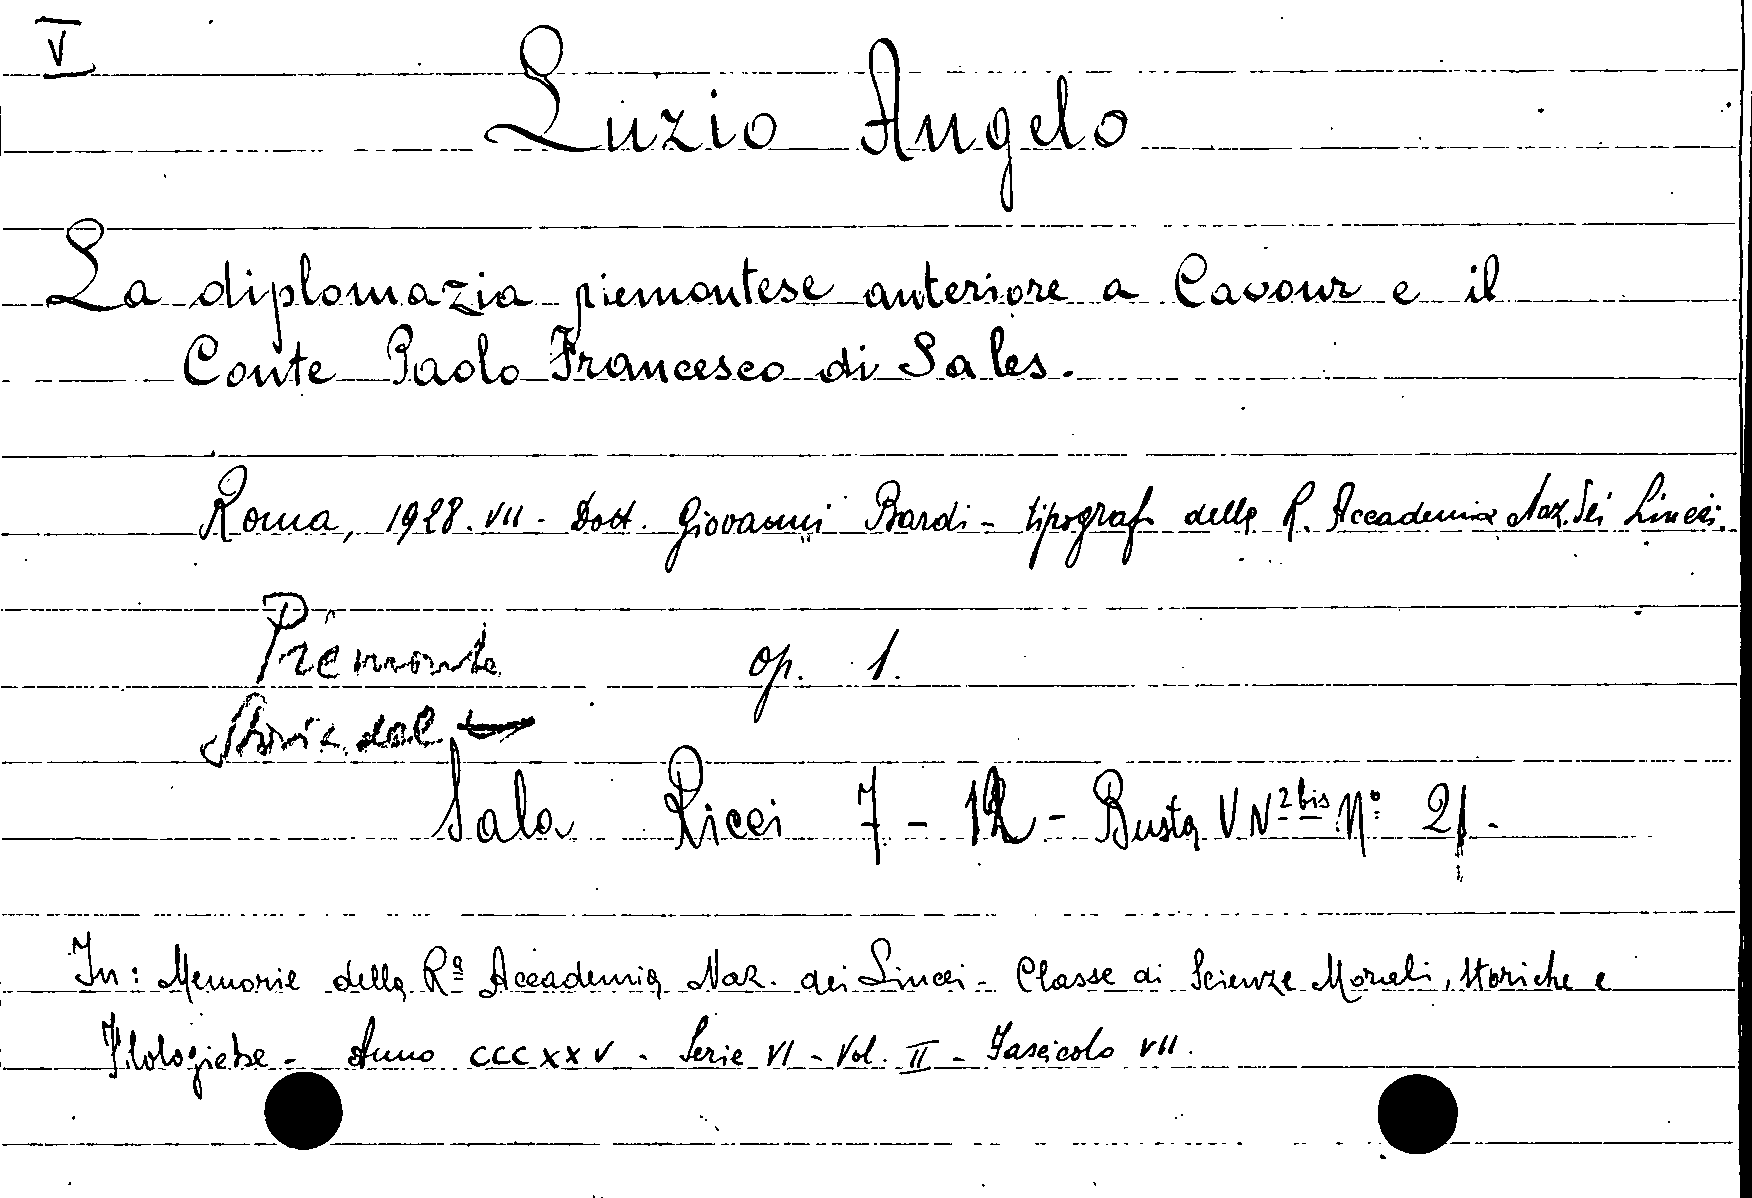 V
Luzio Angelo
La diplomazia piemontese anteriore a Cavour e il
Conte Paolo Francesco di Sales.
Roma, 1928. VII - Dott. Giovanni Bardi - tipograf. della R. Accademia Naz. dei Lincei.
Piemonte op. 1.
Storia del
Sala Ricci 7 - 12 - Busta V N° 2 bis N° 21.
In: Memorie della Rª Accademia Naz. dei Lincei - Classe di Scienze Morali, storiche e
Filologiche - Anno CCCXXV - Serie VI - Vol. II - Fascicolo VII.